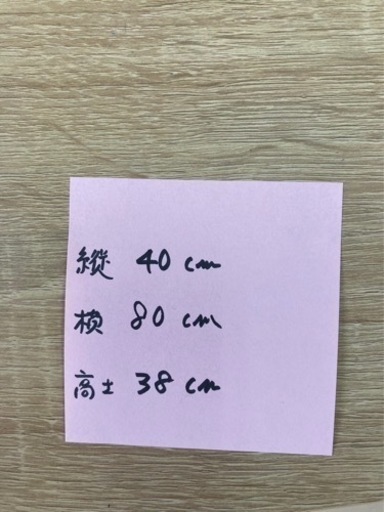 縦 40 cm
横 80 cm
高士 38 cm